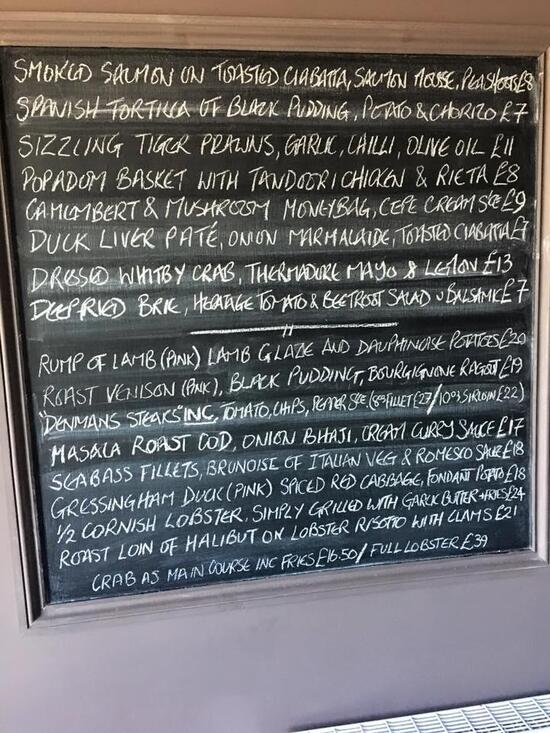 SMOKED SALMON ON TOASTED CIABATTA, SALMON MOUSSE, PEASHOOTS £8
SPANISH TORTILLA OF BLACK PUDDING, POTATO & CHORIZO £7
SIZZLING TIGER PRAWNS, GARLIC, CHILLI, OLIVE OIL £11
POPADOM BASKET WITH TANDOORI CHICKEN & RIETA £8
CAMEMBERT & MUSHROOM MONEYBAG, CEPE CREAM SCE £9
DUCK LIVER PATÉ, ONION MARMALADE, TOASTED CIABATTA £7
DRESSED WHITBY CRAB, THERMADORE MAYO & LEMON £13
DEEPFRIED BRIE, HERITAGE TOMATO & BEETROOT SALAD BALSAMIC £7
RUMP OF LAMB (PINK) LAMB GLAZE AND DAUPHINOISE POTATOES £20
ROAST VENISON (PINK), BLACK PUDDING, BOURGIGNONE RAGOUT £19
"DENMANS STEAKS" INC, TOMATO, CHIPS, PEPPER SCE (8oz FILLET £27/10oz SIRLOIN £22)
MASALA ROAST COD, ONION BHAJI, CREAM CURRY SAUCE £17
SEABASS FILLETS, BRUNOISE OF ITALIAN VEG & ROMESCO SAUCE £18
GRESSINGHAM DUCK (PINK) SPICED RED CABBAGE, FONDANT POTATO £18
1/2 CORNISH LOBSTER, SIMPLY GRILLED WITH GARLIC BUTTER + FRIES £24
ROAST LOIN OF HALIBUT ON LOBSTER RISOTTO WITH CLAMS £21
CRAB AS MAIN COURSE INC FRIES £16.50/ FULL LOBSTER £39